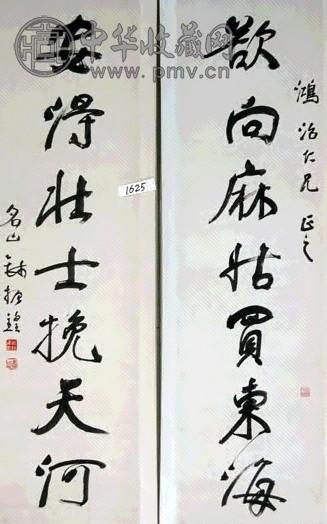 中华收藏网
www.pmv.cn
鴻治仁兄正之
欲向麻姑買東海
安得壯士挽天河
名山錢振鍠
1625